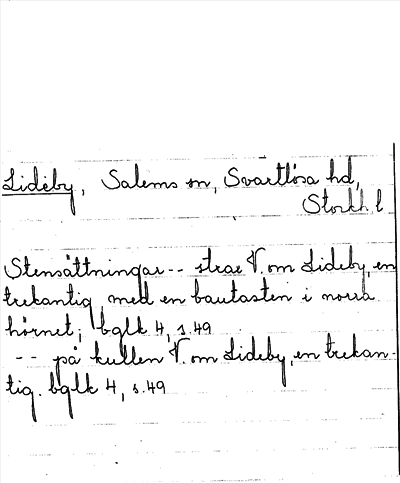 Lideby, Salems sn, Svartlösa hd,
Stockh. l
Stensättningar -- strax V. om Lideby, en
trekantig med en bautasten i norra
hörnet; bglk 4, s. 49
-- på kullen V. om Lideby, en trekan-
tig. bglk 4, s. 49